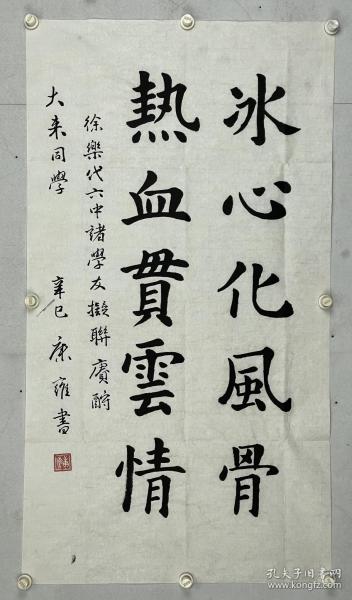 冰心化風骨
熱血貫雲情
徐樂代六中諸學友擬聯賡酧
大来同學
辛巳 康雍書
孔夫子旧书网